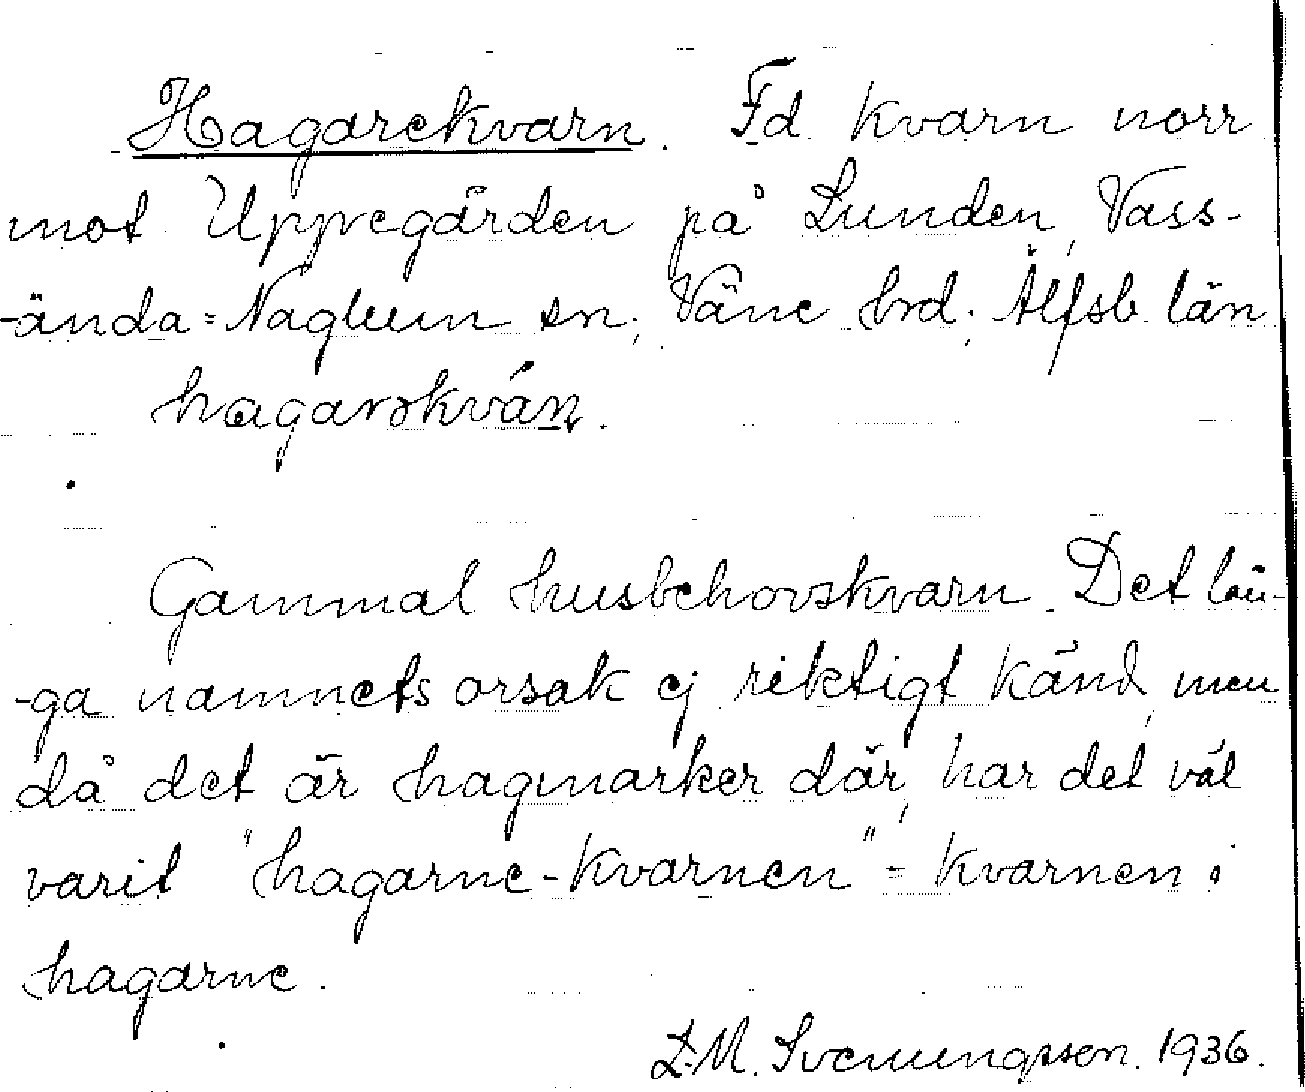 Hagarekvarn. Fd. kvarn norr
mot Uppregården på Lunden, Vass-
-ända=Naglum sn; Väne hrd. Älfsb. län
hagarəkván.
Gammal husbehovskvarn. Det lån-
-ga namnets orsak ej riktigt känd, men
då det är hagmarker där, har det väl
varit "hagarne-kvarnen" = kvarnen i
hagarne.
L.M. Svenungsson. 1936.